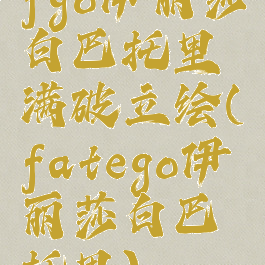 fgo伊丽莎
白巴托里
满破立绘(
fatego伊
丽莎白巴
托里)